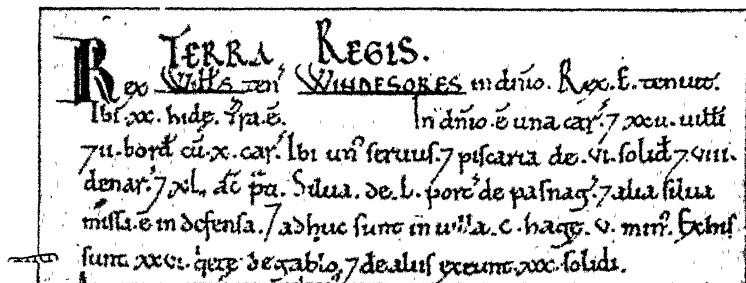 TERRA REGIS.
Rex Wills ten' WINDESORES in dñio. Rex. E. tenuit.
Ibi .xx. hidę. Tra.ē. In dñio.ē una car'. 7 xxii. uilli
7 ii. bord cū .x. car'. Ibi un' seruus. 7 piscaria de .vi. solid 7 viii.
denar'. 7 XL. ac p̄ti. Silua. de .L. porc' de pasnag'. 7 alia silua
missa.ē in defensa. 7 adhuc sunt in uilla .c. hagę .v. min'. Ex his
sunt .xxvi. q'etę de gablo. 7 de aliis exeunt .xxx. solidi.